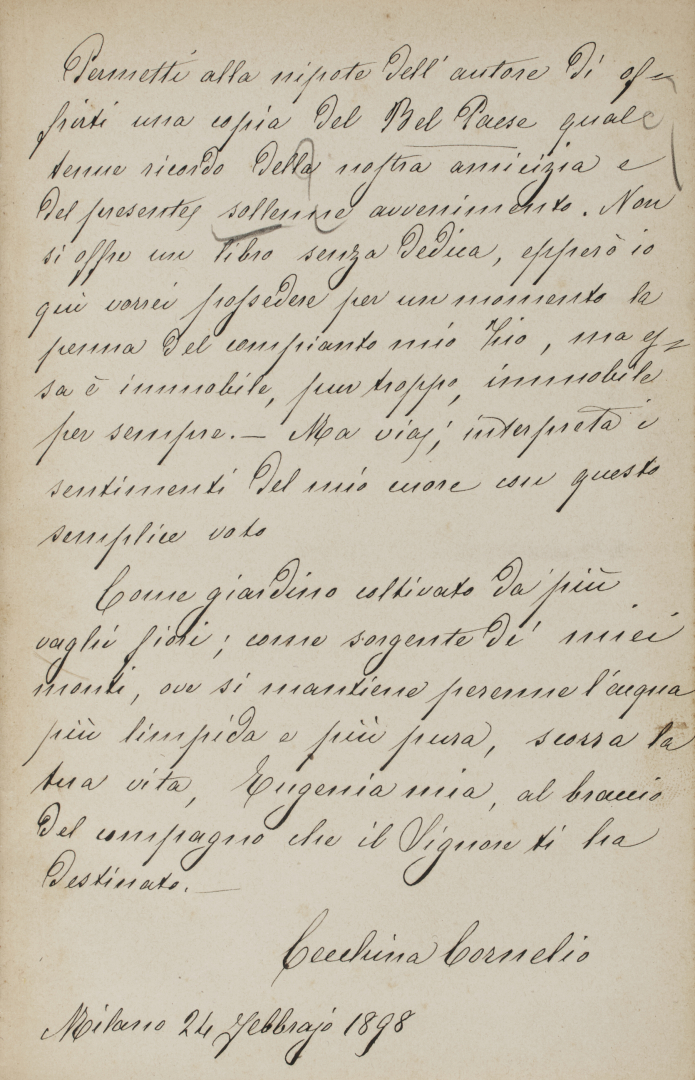 Permetti alla nipote dell'autore di of=
frirti una copia del Bel Paese quale
tenue ricordo della nostra amicizia e
del presente sollenne avvenimento. Non
si offre un libro senza dedica, epperò io
quì vorrei possedere per un momento la
penna del compianto mio Zio, ma es=
sa è immobile, pur troppo, immobile
per sempre. — Ma via, interpreta i
sentimenti del mio cuore con questo
semplice voto
Come giardino coltivato da' più
vaghi fiori; come sorgente de' miei
monti, ove si mantiene perenne l'acqua
più limpida e più pura, scorra la
tua vita, Eugenia mia, al braccio
del compagno che il Signore ti ha
destinato. —
Cecchina Cornelio
Milano 24 Febbrajo 1898